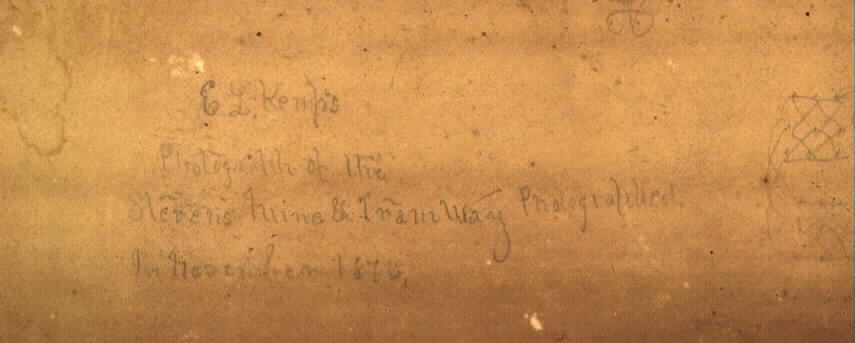 E L. Kemp's
Photograph of the
Stevens Mine & Tram Way Photographed
In November 187